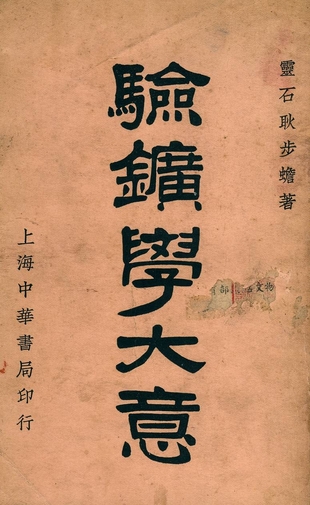 靈石耿步蟾著
驗鑛學大意
上海中華書局印行